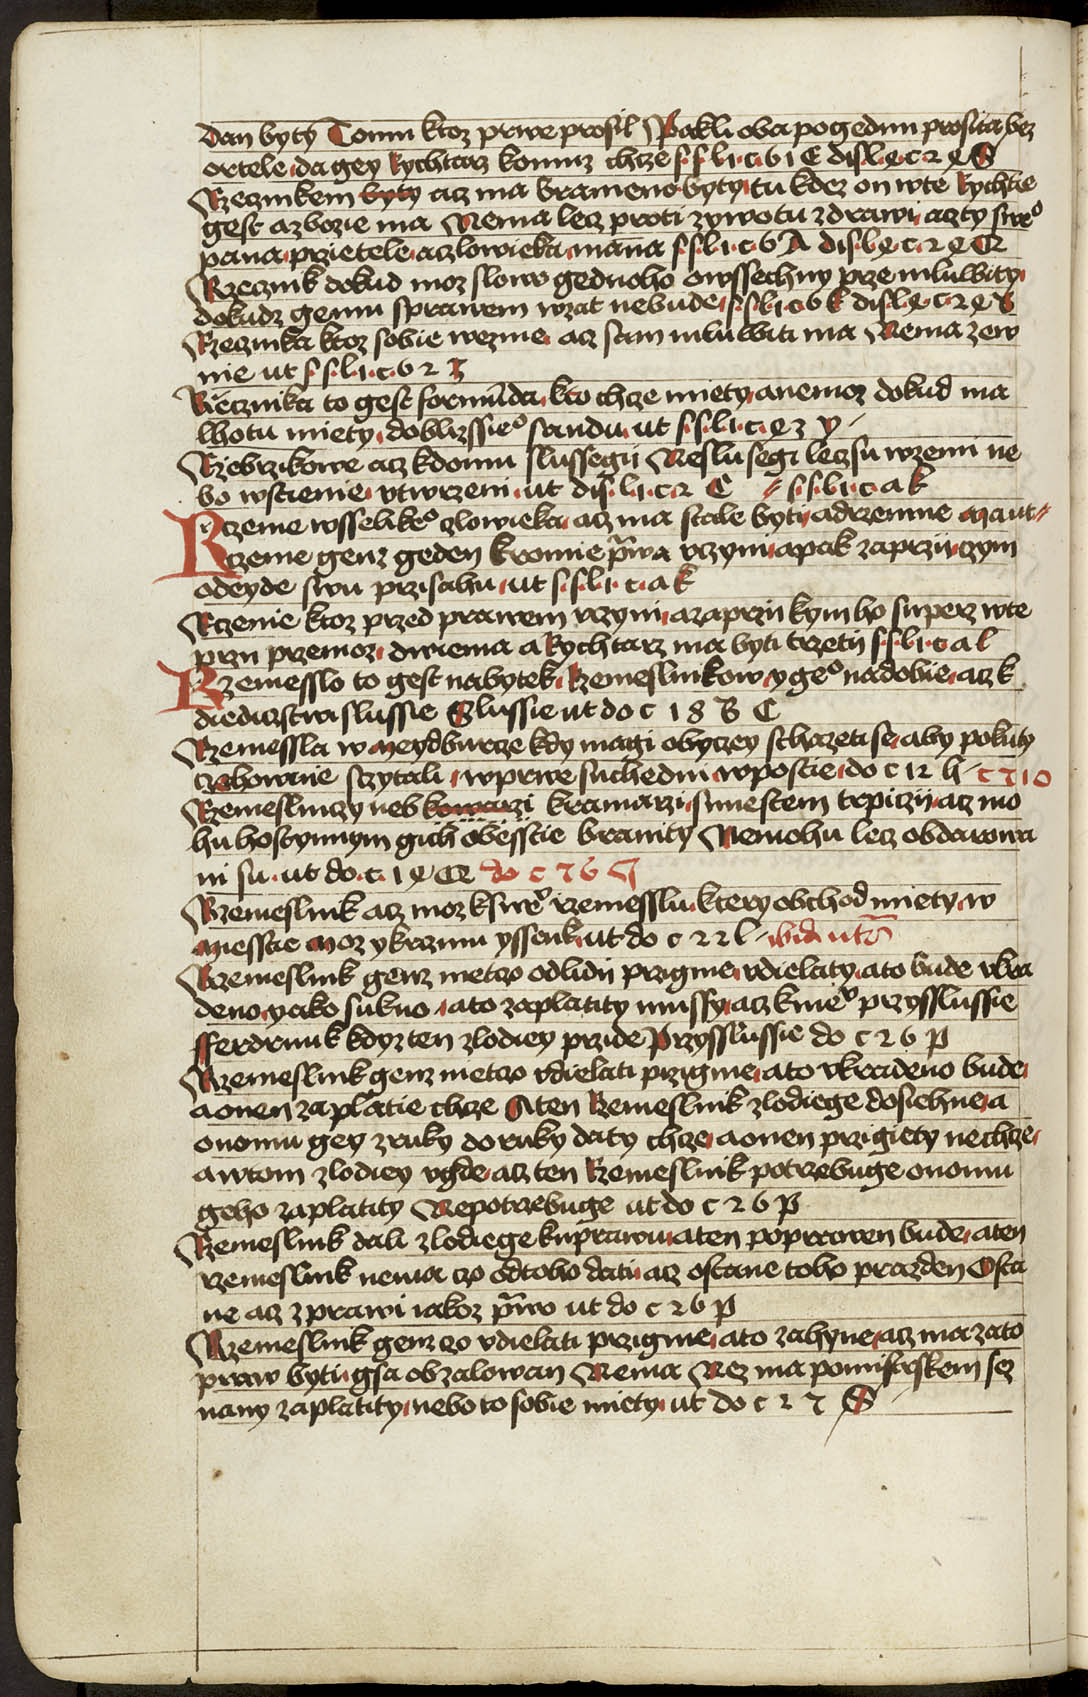 dan byty Tomu ktoz prwe prosil Pakli oba pogednu prosita bez
ortele da gey Rychtarz komuz chcze s s l i c 61 C dis l
Rzecznikem byty acz ma braneno byty tu kdez on wte Rychtie
gest a zbozie ma Nema lecz proti zywotu zdrawi a czty swe°
pana przietele a czlowieka mana s s l i c 6 A dis l
Rzecznik dokud moz slow gednoho owssechny przemluwity
dokudz gemu sprawem wzat nebude s s l i c 6 k dis l
Rzecznika ktoz sobie wezme acz sam mluwiti ma Nema zew
nie ut s s l i c 62 I
Rzecznika to gest formunda kto chcze miety a nemoz dokud ma
lhotu miety dobliżssie° sandu ut s s l i c 93 y
Rzebrzikowe acz kdomu slussegii Neslusegi lecz su wzemi ne
bo wstienie vtwrzeni ut dis l i c 2 C s s l i c a k
Rzeme wsselike° czlowieka acz ma stale byti a drzemne Ma ut
Rczeme genz geden kromie prawa vczyni a pak zaprzii czym
odeyde swu przisahu ut s s l i c a k
Rczenie ktoz przed prawem vczyni a zaprzii kym ho su perz wte
przii przemoz dwiema a Rychtarz ma byti trzetii s s l i c a l
Rzemesslo to gest nabytek Rzemeslnikow y ge° nadobie acz k
diedicztwi slussie Slussie ut do c 18 B C
Rzemessla w Meydburcze kdy magi obyczey schazeti se aby pokuty
czehowanie sczytali w prwe suchedni w postie do c 12 h c 710
Rzemeslniczy neb kowarzi kramarzi s miestem trpiczii acz mo
hu hostynnym gich obesscie braniti Nemohu lecz obdarowa
ni su ut do c 19 Q do c 76 G
Rzemeslnik acz moz k swe° rzemesslu ktery obchod miety w
miesstie Moz y krzmu y ssenk ut do c 22 l
Rzemeslnik genz nietczo od lidii przigme vdielaty a to bude vkra
deno yako sukno a to zaplatity mussy acz k nie° przysslussie
fferdrunk kdyz ten zlodiey przide Przysslussie do c 26 p
Rzemeslnik genz nietczo vdielati przigme a to vkradeno bude
a onen zaplatie chcze A ten Rzemeslnik zlodiege dosiehne a
onomu gey z ruky do ruky daty chcze a onen przigiety nechcze
a wtom zlodiey vgde acz ten Rzemeslnik potrzebuge onomu
geho zaplatity Nepotrzebuge ut do c 26 p
Rzemeslnik dali zlodiege k uprawu a ten poprawen bude a ten
rzemeslnik nema czo od toho dati acz ostane toho prazden Osta
ne acz z prawi iakoz prwo ut do c 26 p
Rzemeslnik genz czo vdielati przigme a to zahyne acz ma zato
praw byti gsa obzalowan Nema Nez ma pomiestskem sez
nany zaplatity nebo to sobie miety ut do c 27 S